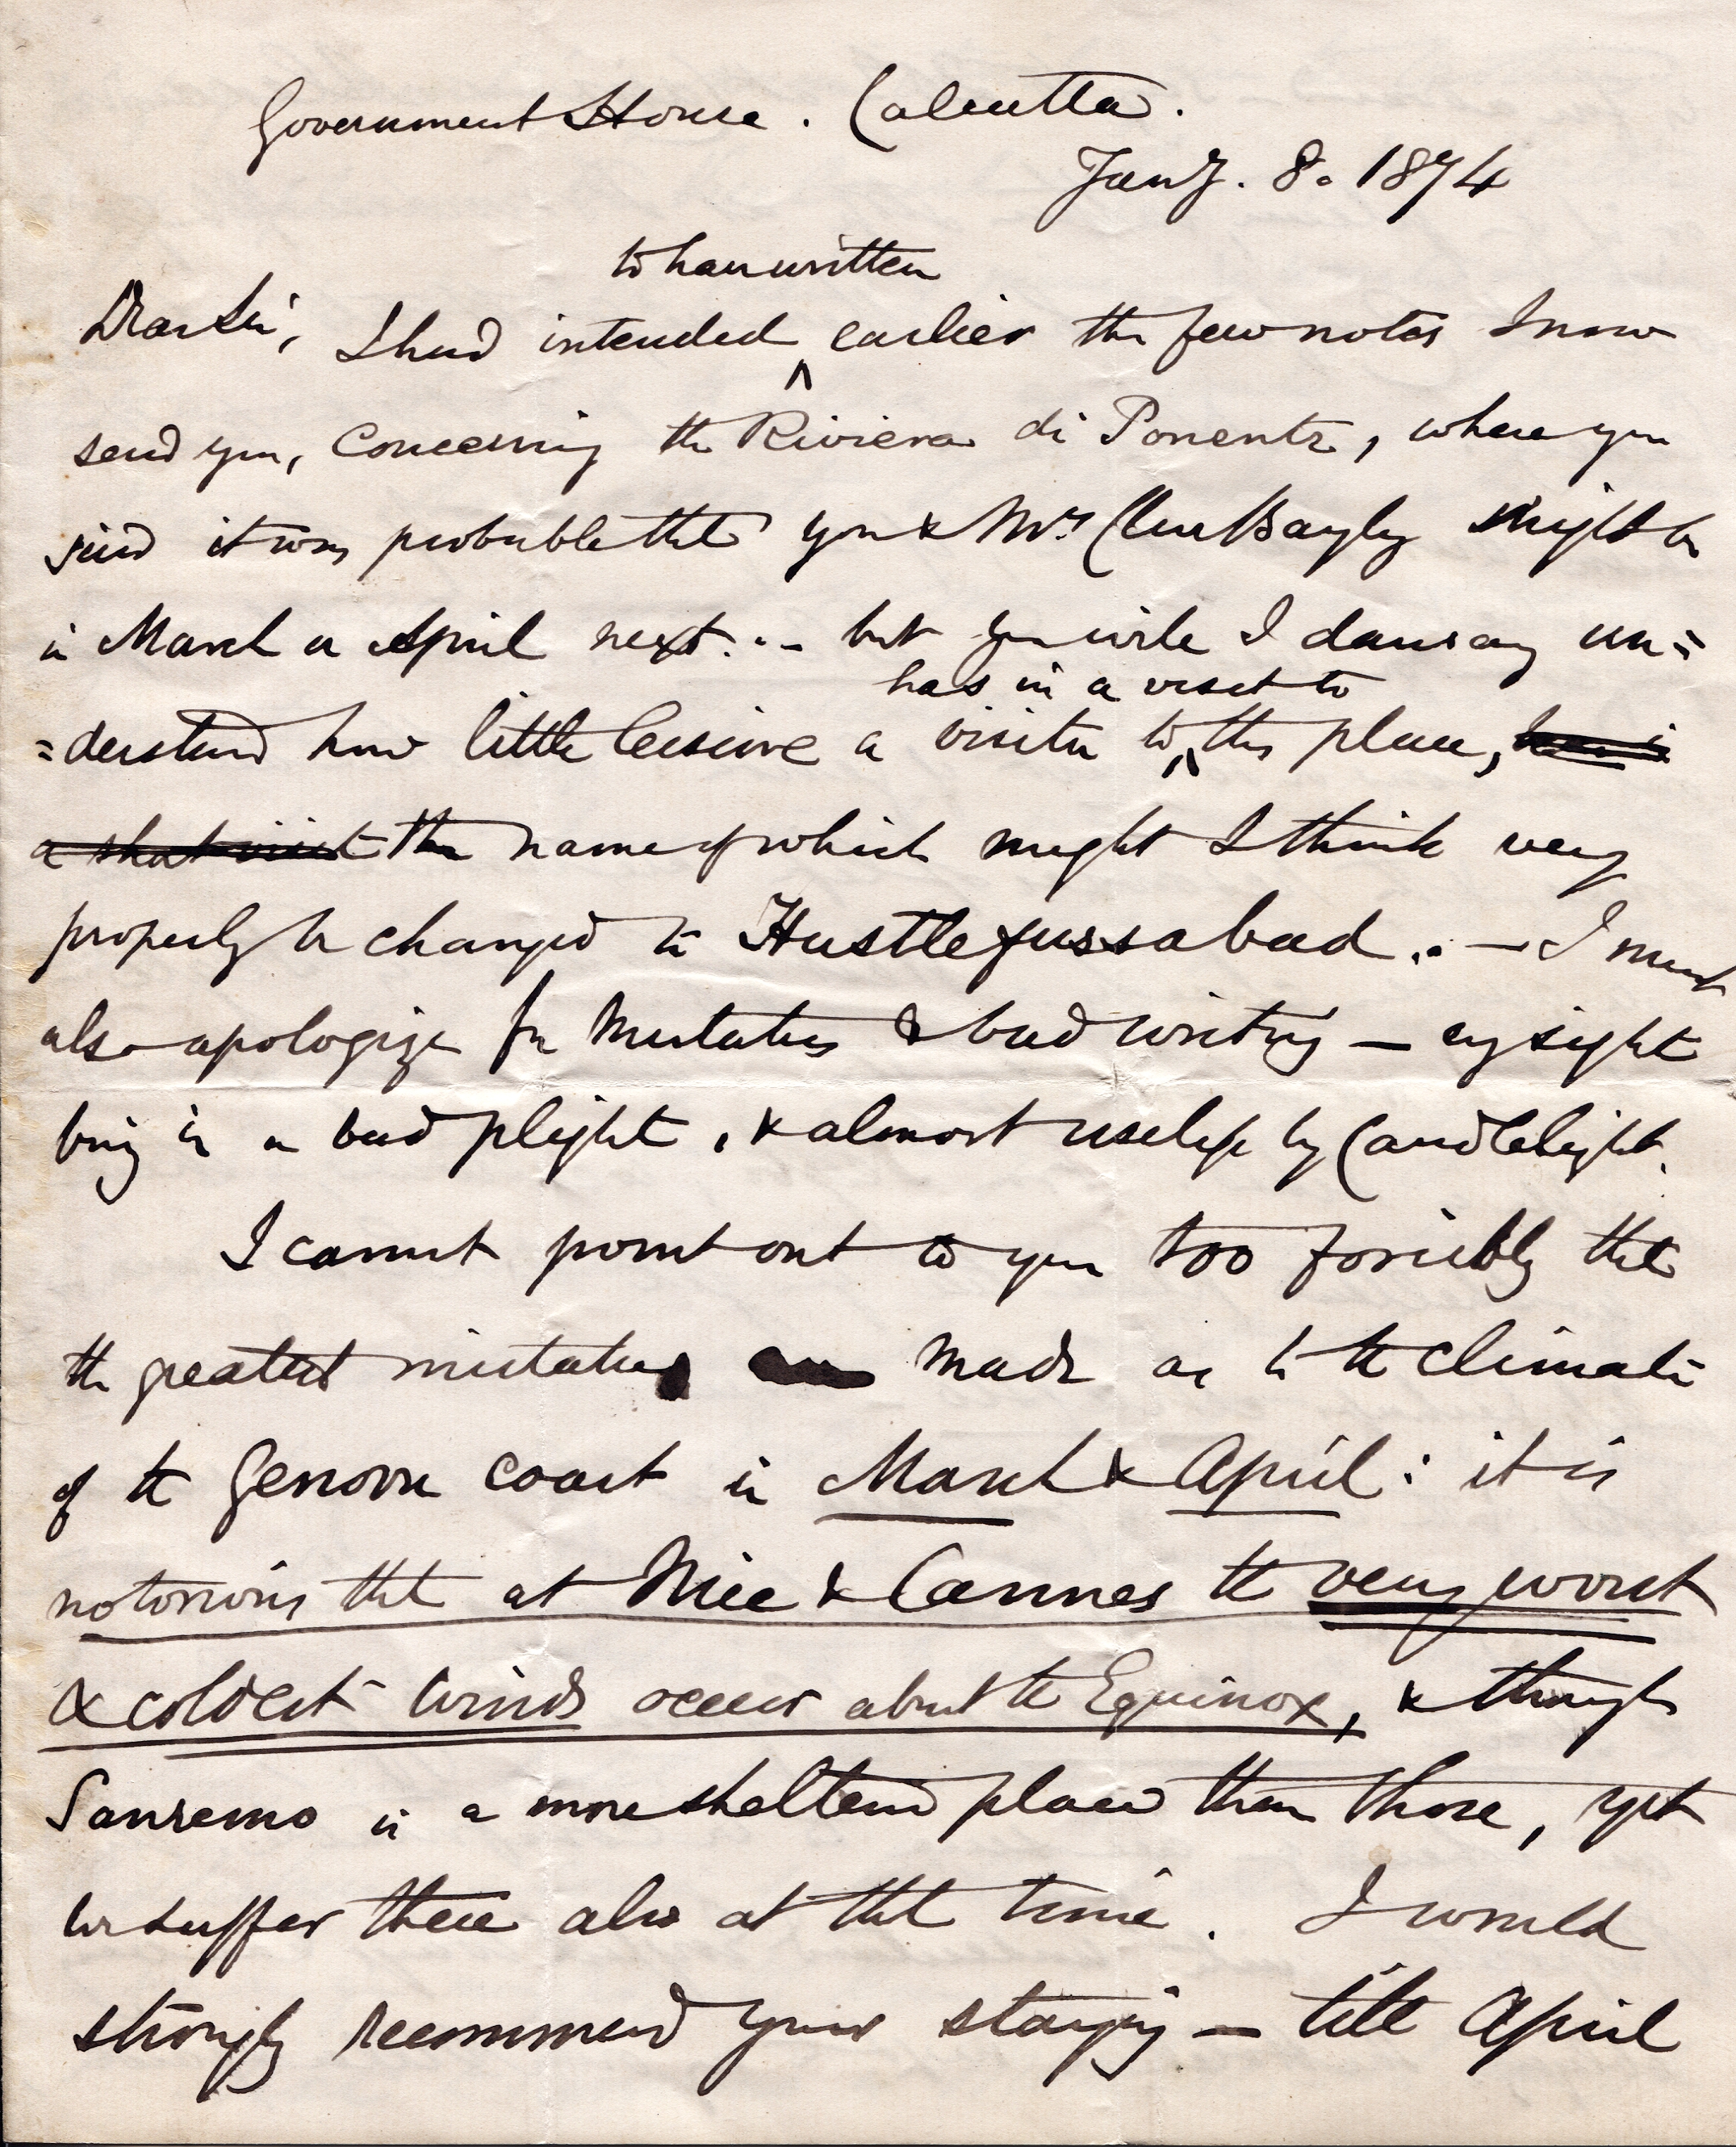 Government House. Calcutta.
Jany. 8. 1874
to have written
Dear Sir, I had intended ^ earlier the few notes I now
send you, concerning the Riviera di Ponente, where you
said it was probable that you & Mrs Clive Bayley might be
in March or April next... but you will I daresay un=
has in a visit to
=derstand how little leisure a visitor to ^ this place,
a short visit the name of which might I think very
properly be changed to Hustlefussabad. — I must
also apologize for mistakes & bad writing — my sight
being in a bad plight, & almost useless by Candlelight.
I cannot point out to you too forcibly that
the greatest mistakes made as to the climate
of the Genova coast in March & April: it is
notorious that at Nice & Cannes the very worst
& coldest winds occur about the Equinox, & though
Sanremo is a more sheltered place than those, yet
we suffer there also at that time. I would
strongly recommend your staying — till April